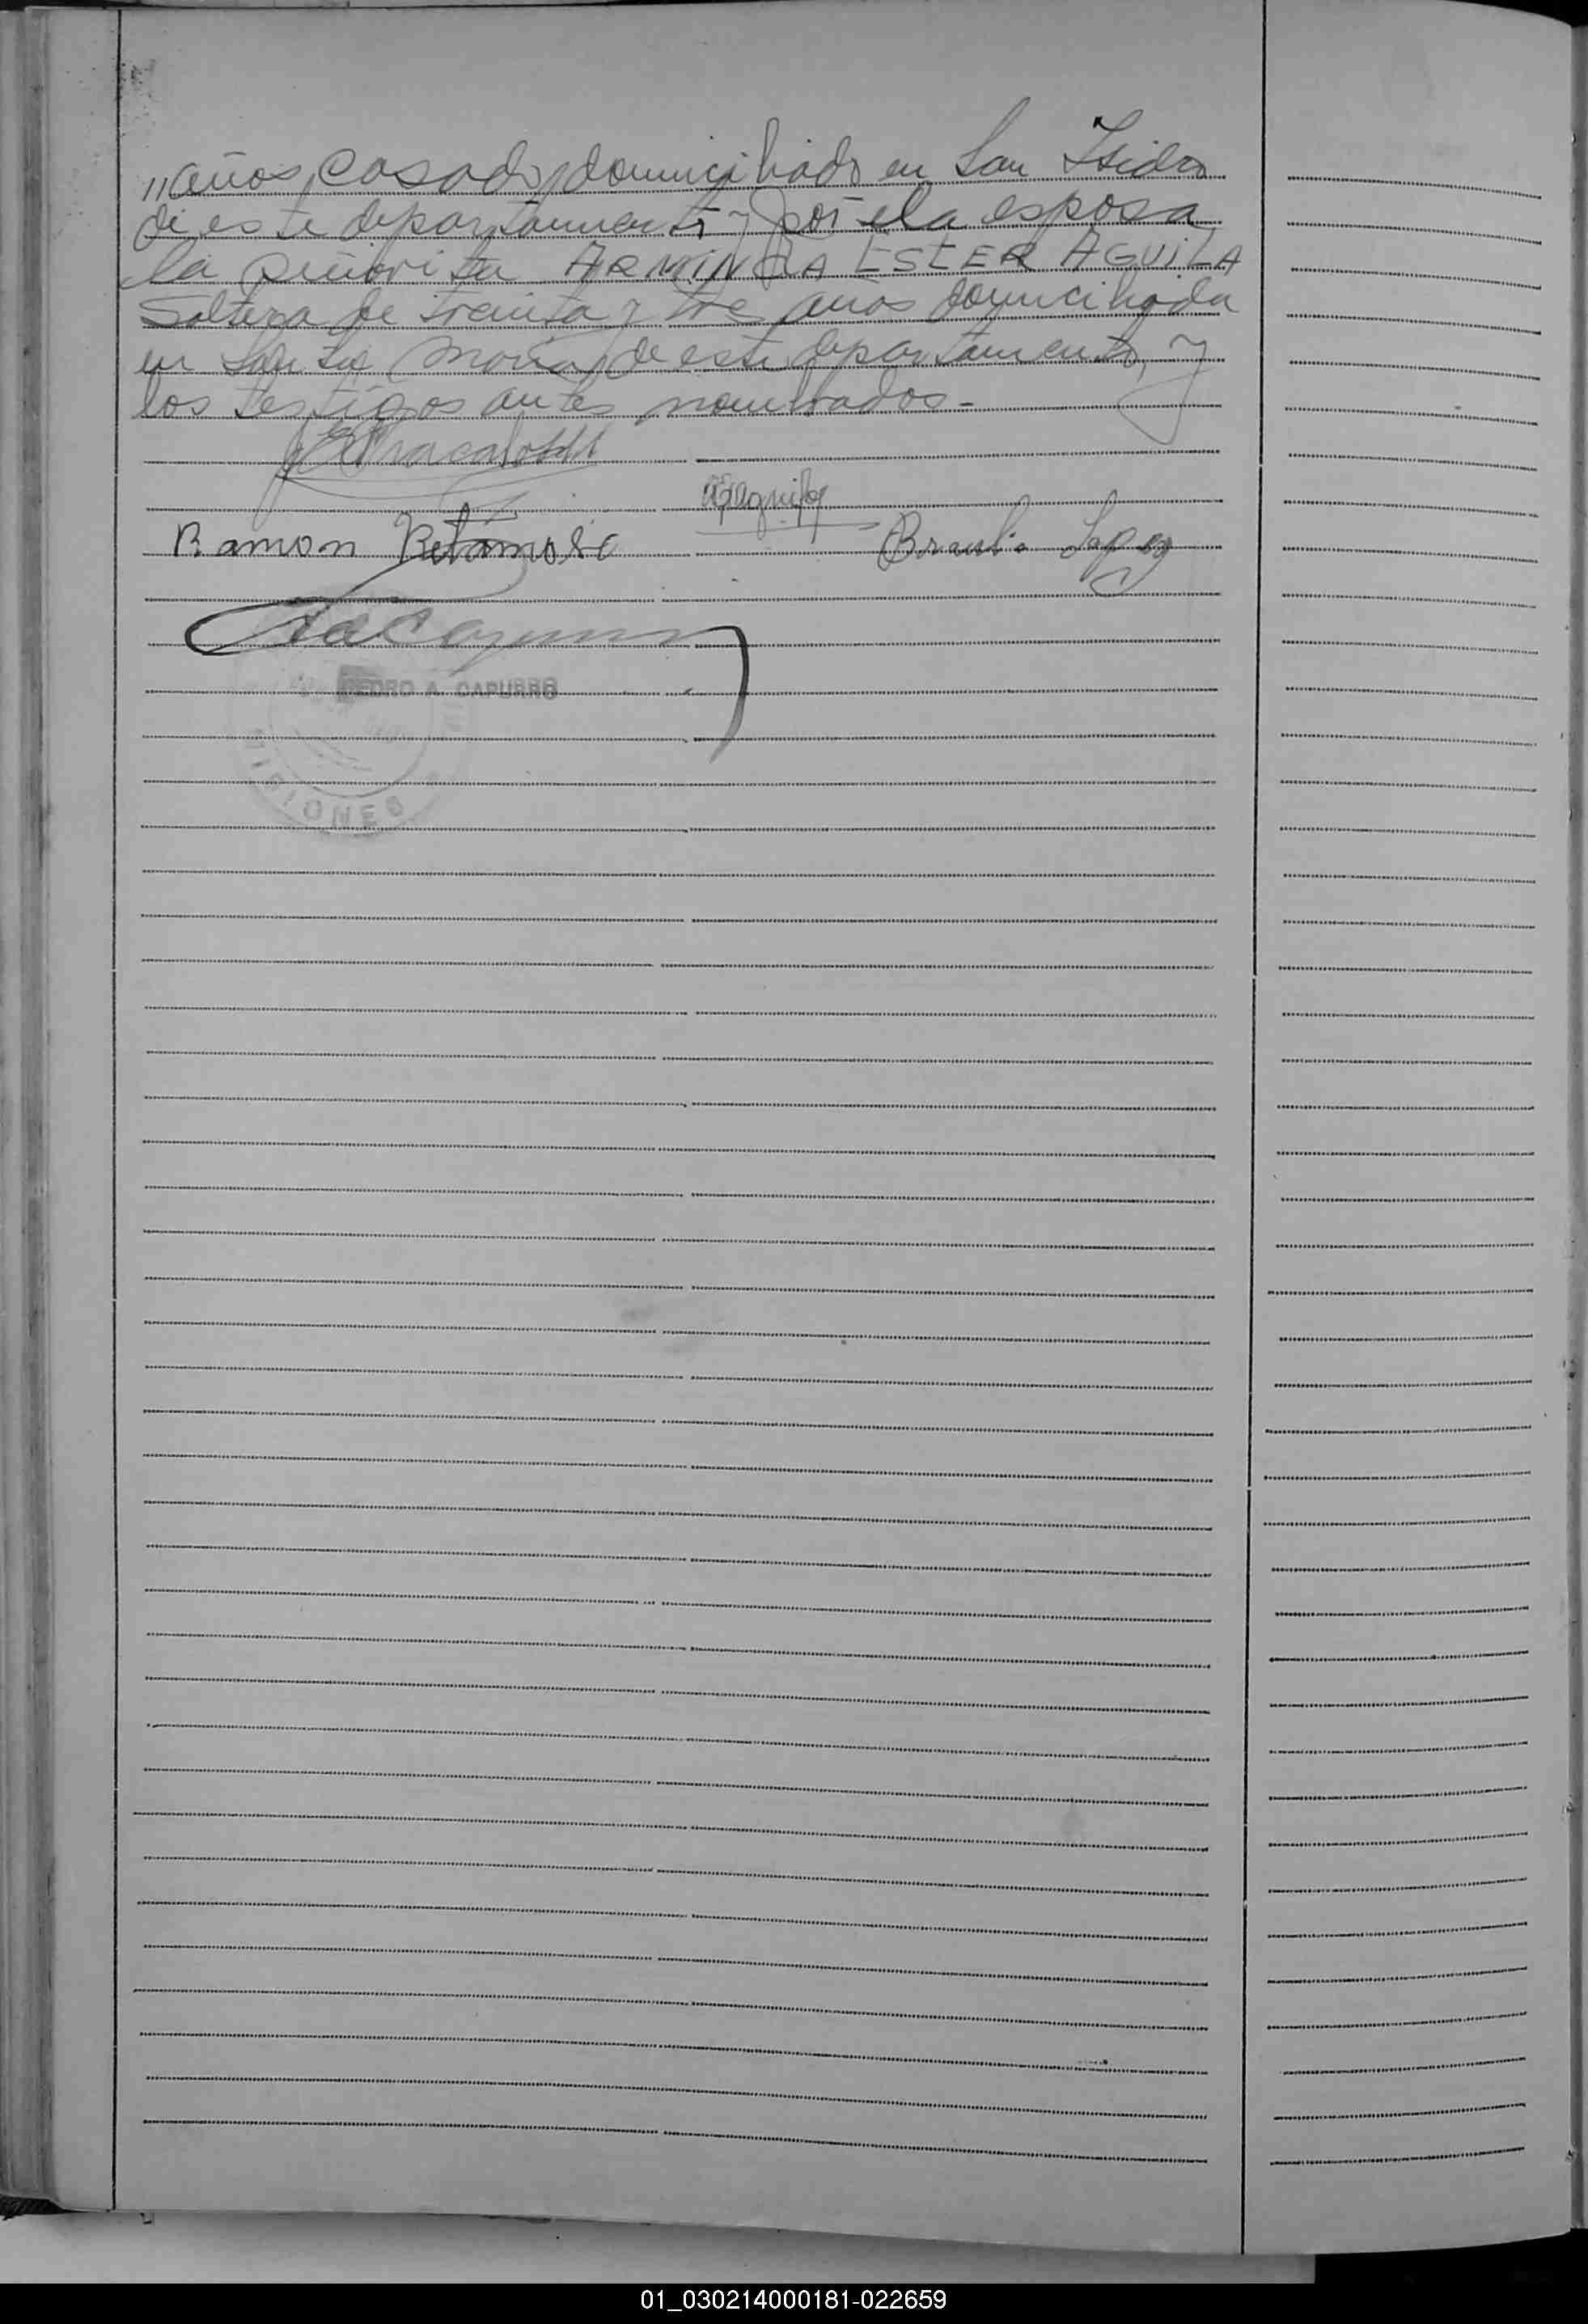 "años, casado, domiciliado en San Isidro
de este departamento y por ella esposa
la señorita ARMINDA ESTER AGUILA
soltera de treinta y tres años domiciliada
en Santa Maria de este departamento, y
los testigos antes nombrados -
Ramon Retamoso Braulio Lopez
PEDRO A. CAPURRO
MISIONES
01_030214000181-022659